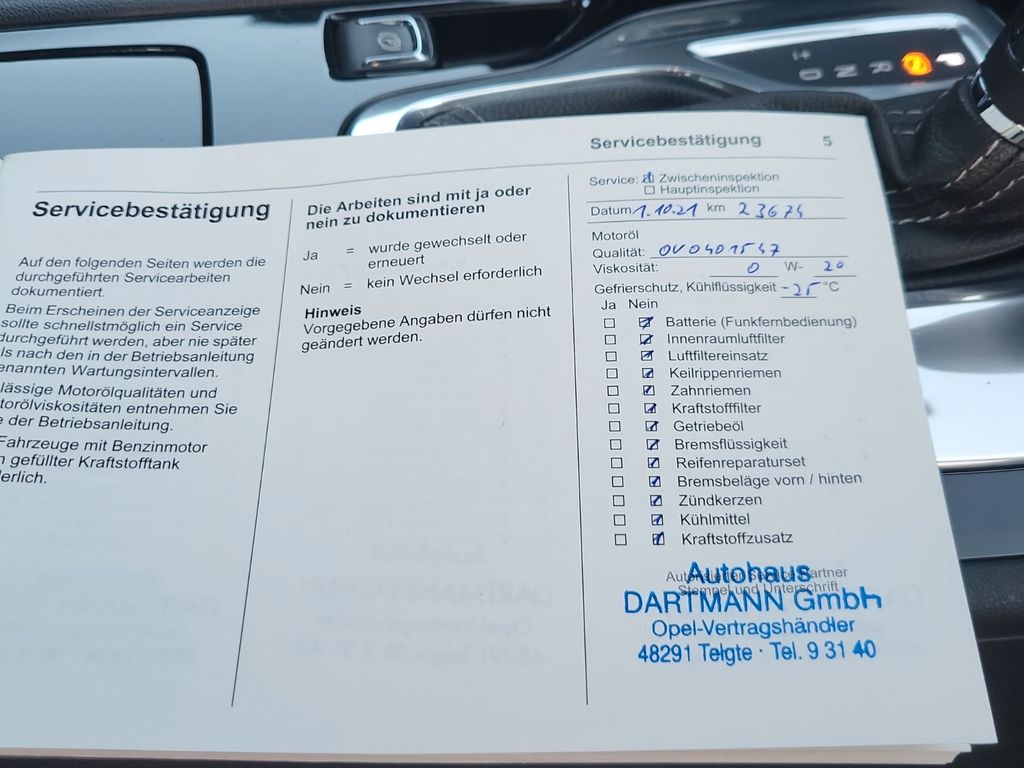 P R N D
Servicebestätigung 5
Servicebestätigung
Auf den folgenden Seiten werden die
durchgeführten Servicearbeiten
dokumentiert.
Beim Erscheinen der Serviceanzeige
sollte schnellstmöglich ein Service
durchgeführt werden, aber nie später
ls nach den in der Betriebsanleitung
enannten Wartungsintervallen.
lässige Motorölqualitäten und
torölviskositäten entnehmen Sie
e der Betriebsanleitung.
Fahrzeuge mit Benzinmotor
n gefüllter Kraftstofftank
derlich.
Die Arbeiten sind mit ja oder
nein zu dokumentieren
Ja = wurde gewechselt oder
erneuert
Nein = kein Wechsel erforderlich
Hinweis
Vorgegebene Angaben dürfen nicht
geändert werden.
Service: Zwischeninspektion
Hauptinspektion
Datum 1.10.21 km 23674
Motoröl
Qualität: OV0401547
Viskosität: 0 W- 20
Gefrierschutz, Kühlflüssigkeit -25 °C
Ja Nein
Batterie (Funkfernbedienung)
Innenraumluftfilter
Luftfiltereinsatz
Keilrippenriemen
Zahnriemen
Kraftstofffilter
Getriebeöl
Bremsflüssigkeit
Reifenreparaturset
Bremsbeläge vorn / hinten
Zündkerzen
Kühlmittel
Kraftstoffzusatz
Autorisierter Service Partner
Stempel und Unterschrift
Autohaus
DARTMANN GmbH
Opel-Vertragshändler
48291 Telgte · Tel. 9 31 40